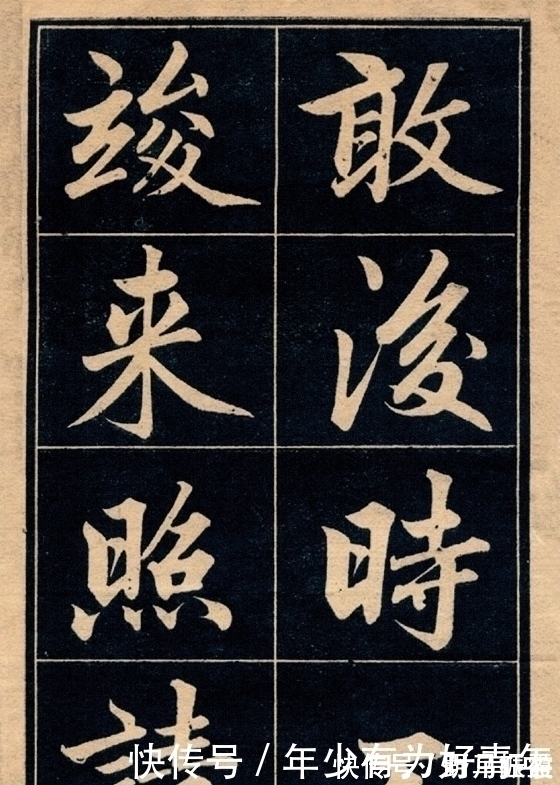 敢後時
竣来照
快传号 / 年少有为好青年